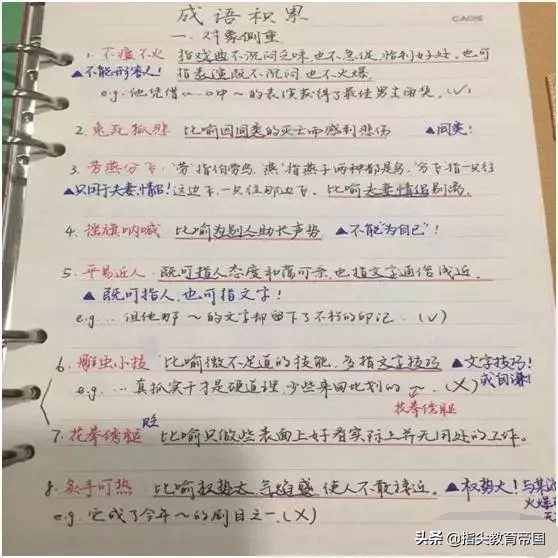 成语积累
CAGIE
一. 对象侧重
1. 不瘟不火 指戏曲不沉闷乏味也不急促, 恰到好处, 也可
▲不能形容人! 指表演既不沉闷也不火爆.
e.g. 他凭借《…》中~的表演获得了最佳男主角奖. (√)
2. 兔死狐悲 比喻因同类的灭亡而感到悲伤 ▲同类!
3. 劳燕分飞 "劳"指伯劳鸟, "燕"指燕子两种都是鸟, "分飞"指一只往
▲只用于夫妻、情侣! 这边飞, 一只往那边飞. 比喻夫妻、情侣别离.
4. 摇旗呐喊 比喻为别人助长声势 ▲不能"为自己"!
5. 平易近人 既可指人态度和蔼可亲, 也指文字通俗浅近.
▲ 既可指人, 也可指文字!
e.g. … 但他那~的文字却留下了不朽的印记. (√)
6. 雕虫小技 比喻微不足道的技能, 多指文字技巧 ▲文字技巧!
或自谦!
e.g. … 真抓实干才是硬道理, 少些来回比划的~. (×)
花拳绣腿
贬
7. 花拳绣腿 比喻只做些表面上好看实际上并无用处的工作.
8. 炙手可热 比喻权势大, 气焰盛, 使人不敢接近. ▲权势大! 与某
火爆
e.g. 它成了今年~的剧目之一. (×)
头条 @指尖教育帝国